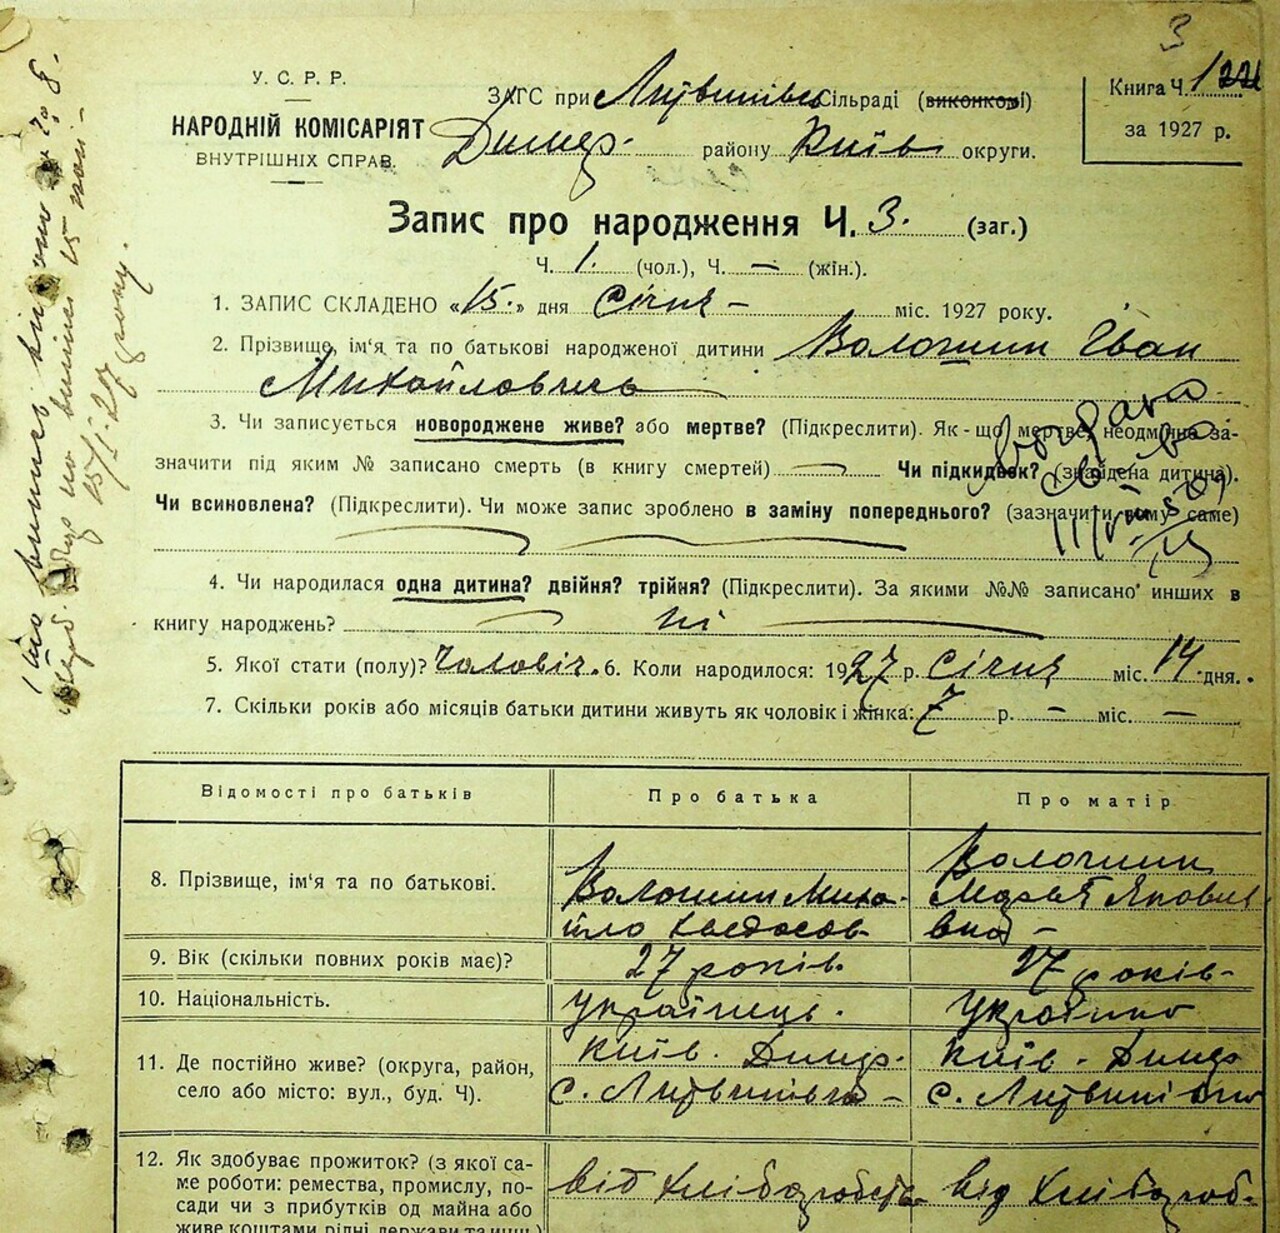 3
У. С. Р. Р.
НАРОДНІЙ КОМІСАРІЯТ
ВНУТРІШНІХ СПРАВ.
ЗАГС при Литвинівс Сільраді (виконкомі)
Димер. району Київ округи.
Книга Ч. 1
за 1927 р.
Запис про народження Ч. 3. (заг.)
Ч. 1. (чол.), Ч. — (жін.).
1. ЗАПИС СКЛАДЕНО «15.» дня Січня — міс. 1927 року.
2. Прізвище, ім'я та по батькові народженої дитини Волошин Іван
Михайлович
3. Чи записується новороджене живе? або мертве? (Підкреслити). Як-що мертве, неодмінно за-
значити під яким № записано смерть (в книгу смертей) — Чи підкидьок? (знайдена дитина).
Чи всиновлена? (Підкреслити). Чи може запис зроблено в заміну попереднього? (зазначити чому саме)
4. Чи народилася одна дитина? двійня? трійня? (Підкреслити). За якими №№ записано инших в
книгу народжень? — ні —
5. Якої стати (полу)? чоловіч. 6. Коли народилося: 1927 р. Січня міс. 14 дня.
7. Скільки років або місяців батьки дитини живуть як чоловік і жінка: 7 р. — міс. —
Відомості про батьків Про батька Про матір
8. Прізвище, ім'я та по батькові.
Волошин Миха-
йло
Волошин
Марья
9. Вік (скільки повних років має)? 27 років. 27 років-
10. Національність. Українець. Українка
11. Де постійно живе? (округа, район,
село або місто: вул., буд. Ч).
Київ. Димер.
с. Литвинівка —
Київ. Димер
с. Литвинівка
12. Як здобуває прожиток? (з якої са-
ме роботи: ремества, промислу, по-
сади чи з прибутків од майна або
живе коштами рідні, держави та инш.)
від хліборобств
від хлібороб-